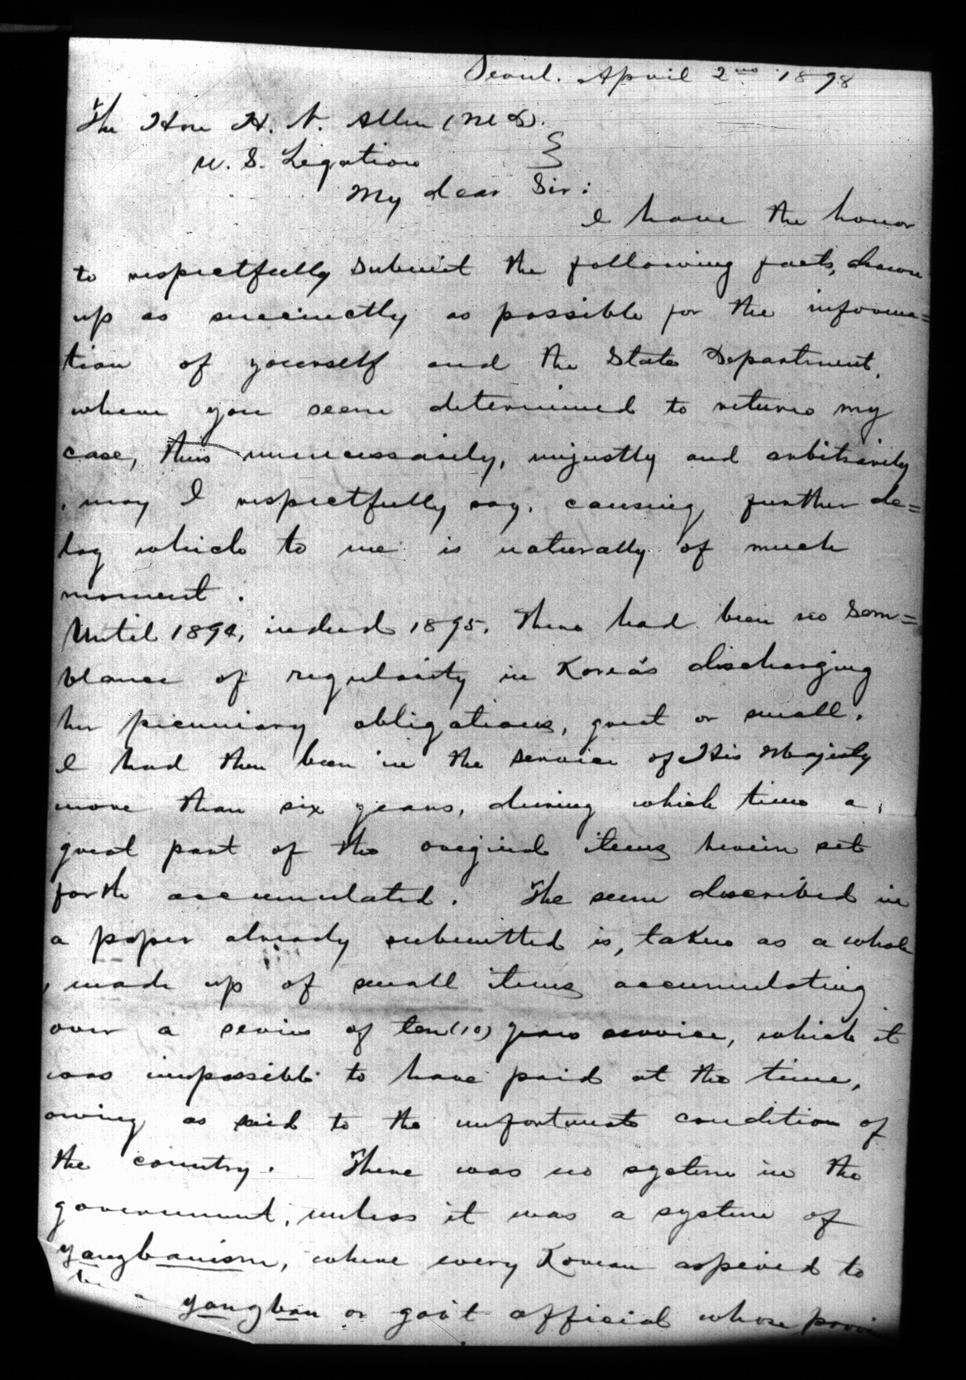 Seoul. April 2nd 1898
The Hon H. N. Allen (M.D).
U. S. Legation
My dear Sir:
I have the honor
to respectfully submit the following facts, drawn
up as succinctly as possible for the informa=
tion of yourself and the State Department,
when you seem determined to return my
case, thus unnecessarily, unjustly and arbitrarily
, may I respectfully say, causing further de=
lay which to me is naturally of much
moment.
Until 1894, indeed 1895, there had been no sem=
blance of regularity in Korea's discharging
her pecuniary obligations, great or small.
I had then been in the service of His Majesty
more than six years, during which time a
great part of the original items herein set
forth accumulated. The sum described in
a paper already submitted is, taken as a whole
, made up of small items accumulating
over a series of ten (10) years service, which it
was impossible to have paid at the time,
owing as said to the unfortunate condition of
the country. There was no system in the
government, unless it was a system of
yangbanism, where every Korean aspired to
yangban or gov't official whose